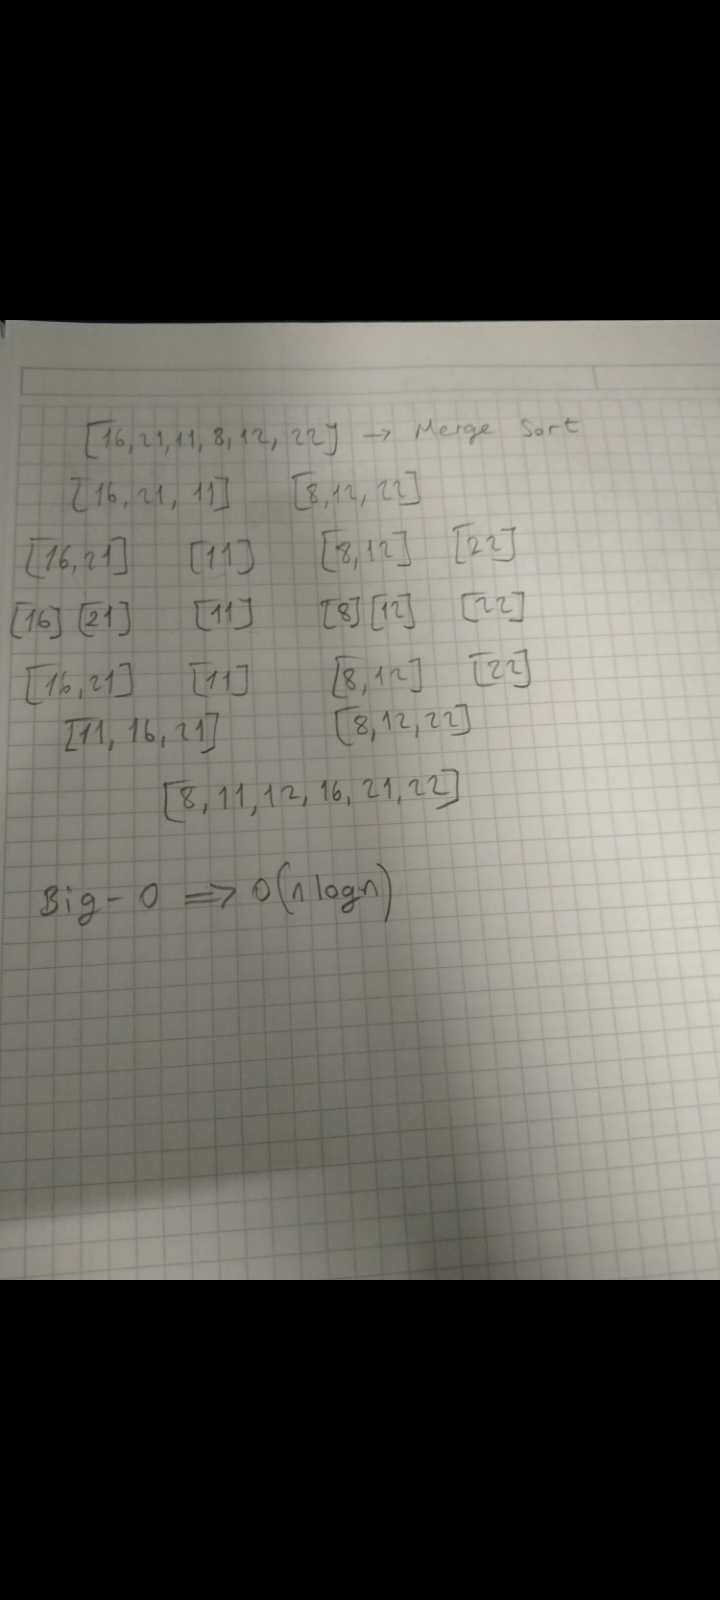 [16, 21, 11, 8, 12, 22] → Merge Sort
[16, 21, 11] [8, 12, 22]
[16, 21] [11] [8, 12] [22]
[16] [21] [11] [8] [12] [22]
[16, 21] [11] [8, 12] [22]
[11, 16, 21] [8, 12, 22]
[8, 11, 12, 16, 21, 22]
Big-O ⇒ O(n logn)